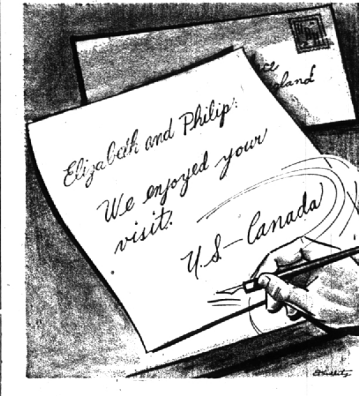 Elizabeth and Philip:
We enjoyed your
visit.
U.S.—Canada